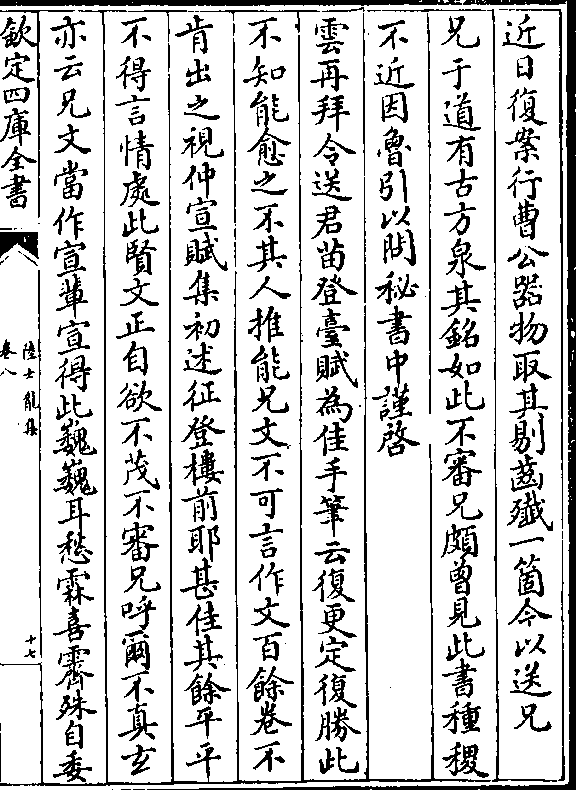 近日復案行曹公器物取其剔齒殱一箇今以送兄
兄于道有古方泉其銘如此不審兄頗曾見此書種稷
不近因魯引以問秘書中謹啓
雲再拜令送君苗登臺賦為佳手筆云復更定復勝此
不知能愈之不其人推能兄文不可言作文百餘卷不
肯出之視仲宣賦集初述征登樓前耶甚佳其餘平平
不得言情處此賢文正自欲不茂不審兄呼爾不真玄
亦云兄文當作宣輩宣得此巍巍耳愁霖喜霽殊自委
欽定四庫全書
陸士龍集
卷八
十七